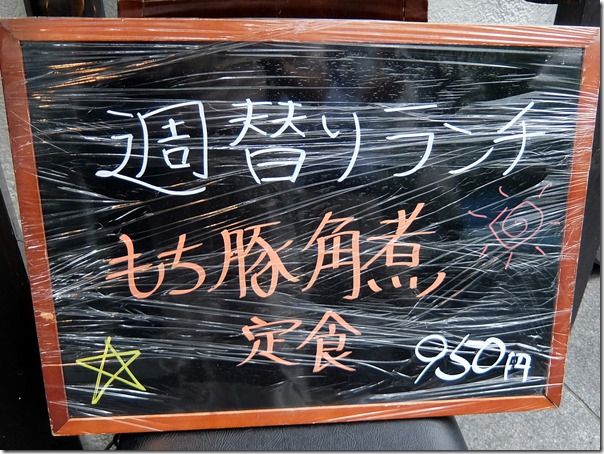 週替りランチ
もち豚角煮
定食 950円